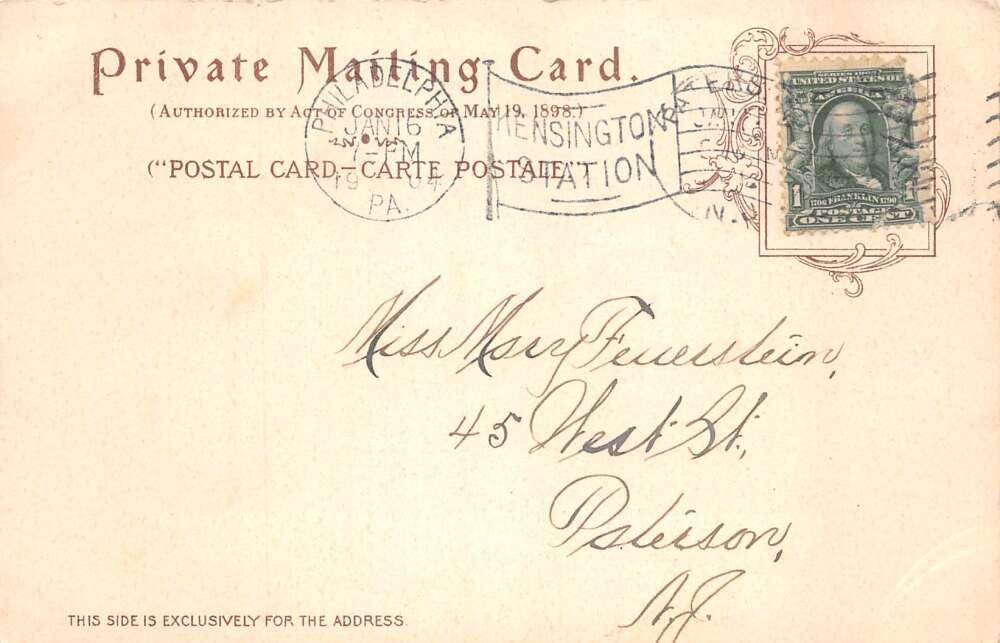 Private Mailing Card.
(AUTHORIZED BY ACT OF CONGRESS OF MAY 19, 1898.)
("POSTAL CARD—CARTE POSTALE")
PHILADELPHIA
JAN 16
7-PM
19 04
PA.
KENSINGTON
STATION
N.J.
SERIES 1902
UNITED STATES OF AMERICA
1 1
1706 FRANKLIN 1790
POSTAGE
ONE CENT
Miss Mary Feuerstein,
45 West St.,
Paterson,
N.J.
THIS SIDE IS EXCLUSIVELY FOR THE ADDRESS.